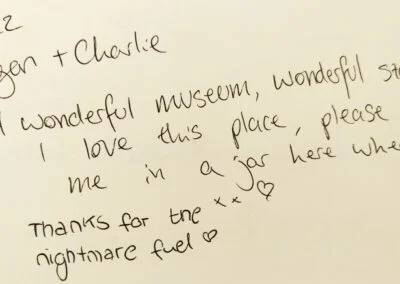 22
gan + Charlie
wonderful museum, wonderful st
I love this place, please
me in a jar here whe
xx ♡
Thanks for the
nightmare fuel ♡